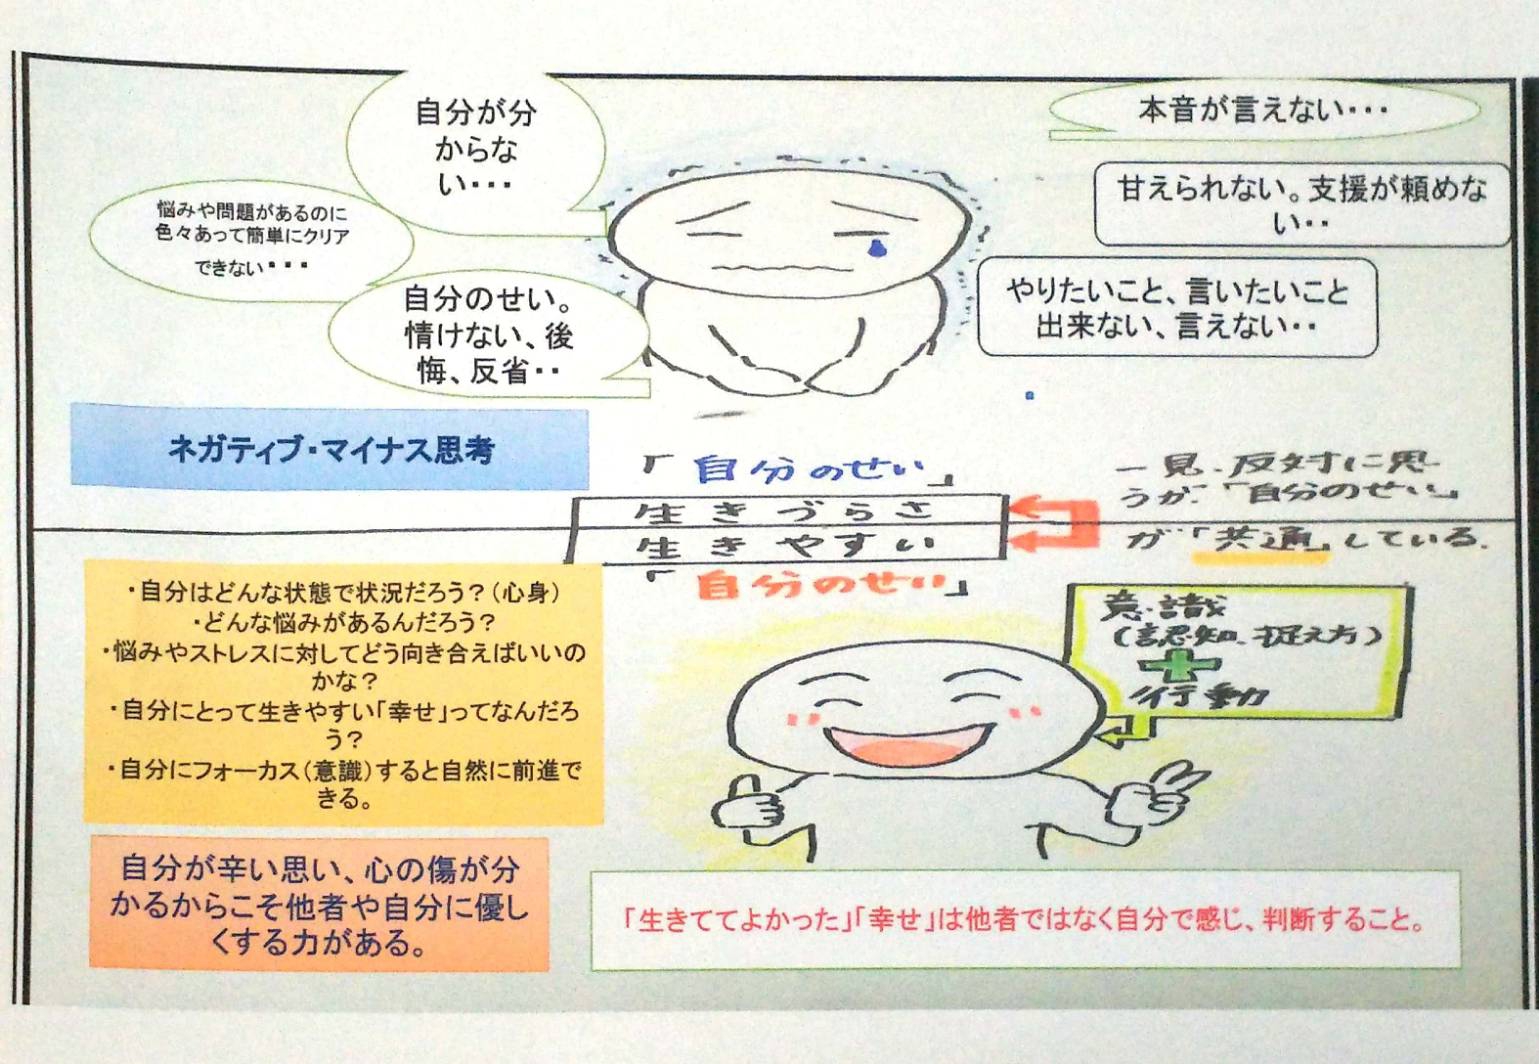 自分が分
からな
い・・・
本音が言えない・・・
悩みや問題があるのに
色々あって簡単にクリア
できない・・・
甘えられない。支援が頼めな
い・・
自分のせい。
情けない、後
悔、反省・・
やりたいこと、言いたいこと
出来ない、言えない・・
ネガティブ・マイナス思考
「自分のせい」
生きづらさ
生きやすい
「自分のせい」
一見、反対に思
うが、「自分のせい」
が「共通」している。
・自分はどんな状態で状況だろう？（心身）
・どんな悩みがあるんだろう？
・悩みやストレスに対してどう向き合えばいいの
かな？
・自分にとって生きやすい「幸せ」ってなんだろ
う？
・自分にフォーカス（意識）すると自然に前進で
きる。
意識
（認知、捉え方）
+
行動
自分が辛い思い、心の傷が分
かるからこそ他者や自分に優し
くする力がある。
「生きててよかった」「幸せ」は他者ではなく自分で感じ、判断すること。